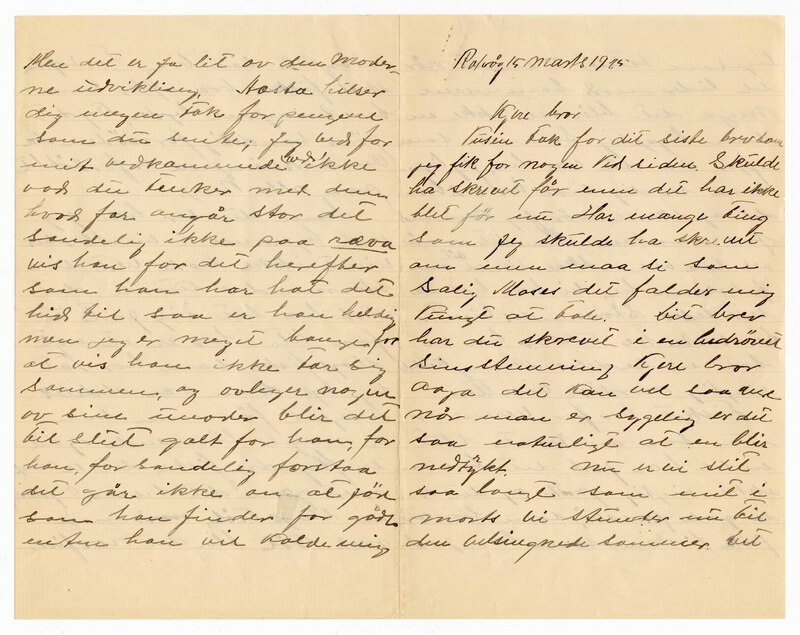 Men det er jo lit av den Moder-
ne udvikling, Aasta hilser
dig megen Tak for pengene
som du sente; Jeg ved for
mit vedkommende ikke
vad du tenker med dem
hvad far angår stor det
sandelig ikke paa ræva
vis han for det herefter
som han har hat det
hid til saa er han heldig
men jeg er meget bange for
at vis han ikke tar sig
sammen, og ovlegger nogen
av sine unoder blir det
til slut galt for han, for
han, for sandelig forstaa
det går ikke an at
som han finder for
enten han vil kalde mig
15 marts 1925
Kjere bror
Tusen Tak for dit siste brev som
jeg fik for nogen Tid siden. Skulde
ha skrevet før men det har ikke
blet før nu Har mange Ting
som Jeg skulde ha skrevet
om men maa si som
Salig Moses det falder mig
Tungt at Tale. Dit brev
har du skrevet i en bedrøvet
Sinsstemning Kjere bror
Aaja det kan vel saa
når man er sygelig er det
saa naturligt at en blir
nedtrykt. nu er vi slit
saa langt som mit i
marts vi stunder nu til
den velsingnede sommer. Dit